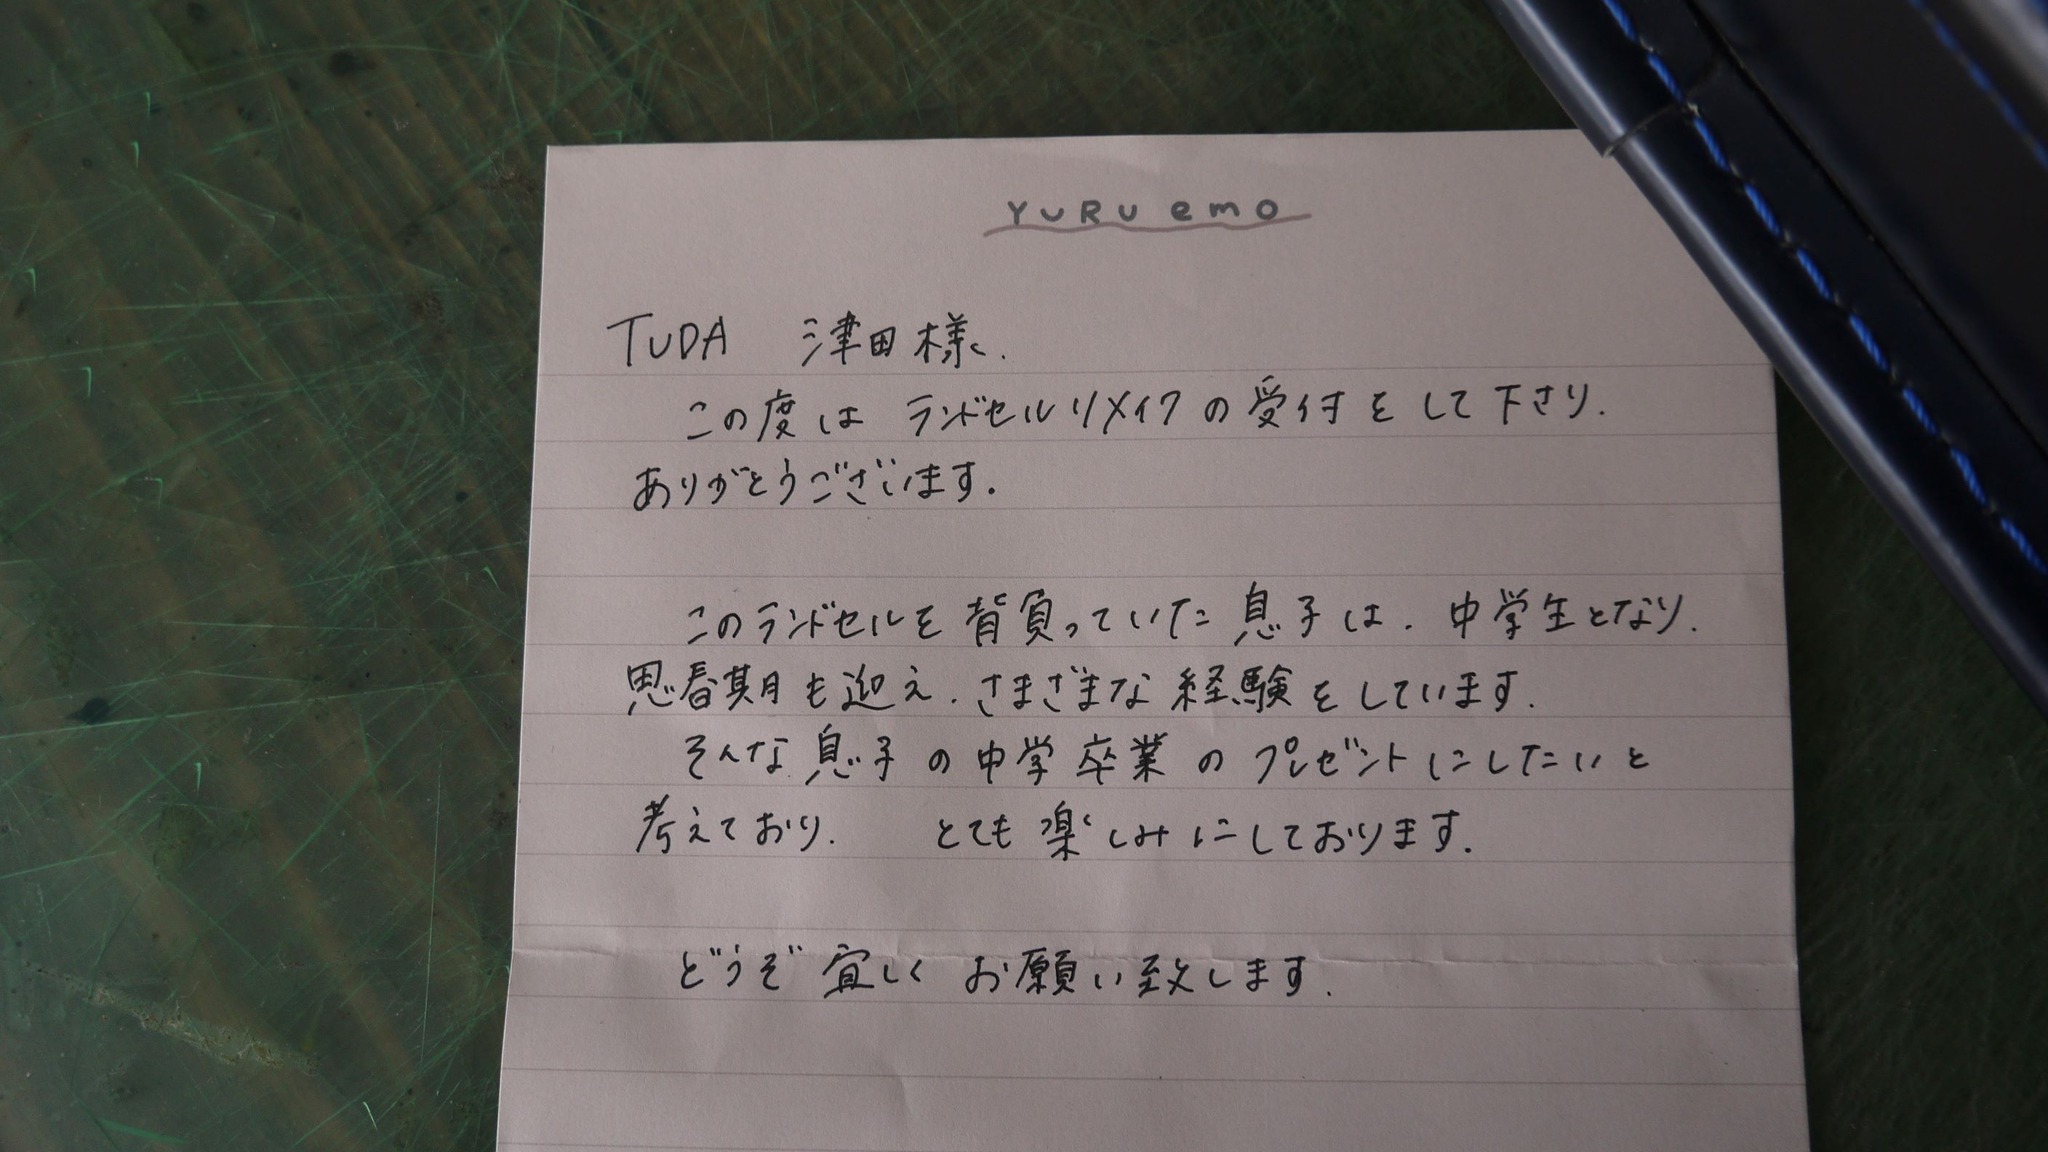 YURU emo
TUDA 津田様.
この度は ランドセルリメイクの受付をして下さり.
ありがとうございます.
このランドセルを背負っていた息子は. 中学生となり.
思春期も迎え. さまざまな経験をしています.
そんな息子の中学卒業のプレゼントにしたいと
考えており. とても楽しみにしております.
どうぞ宜しくお願い致します.